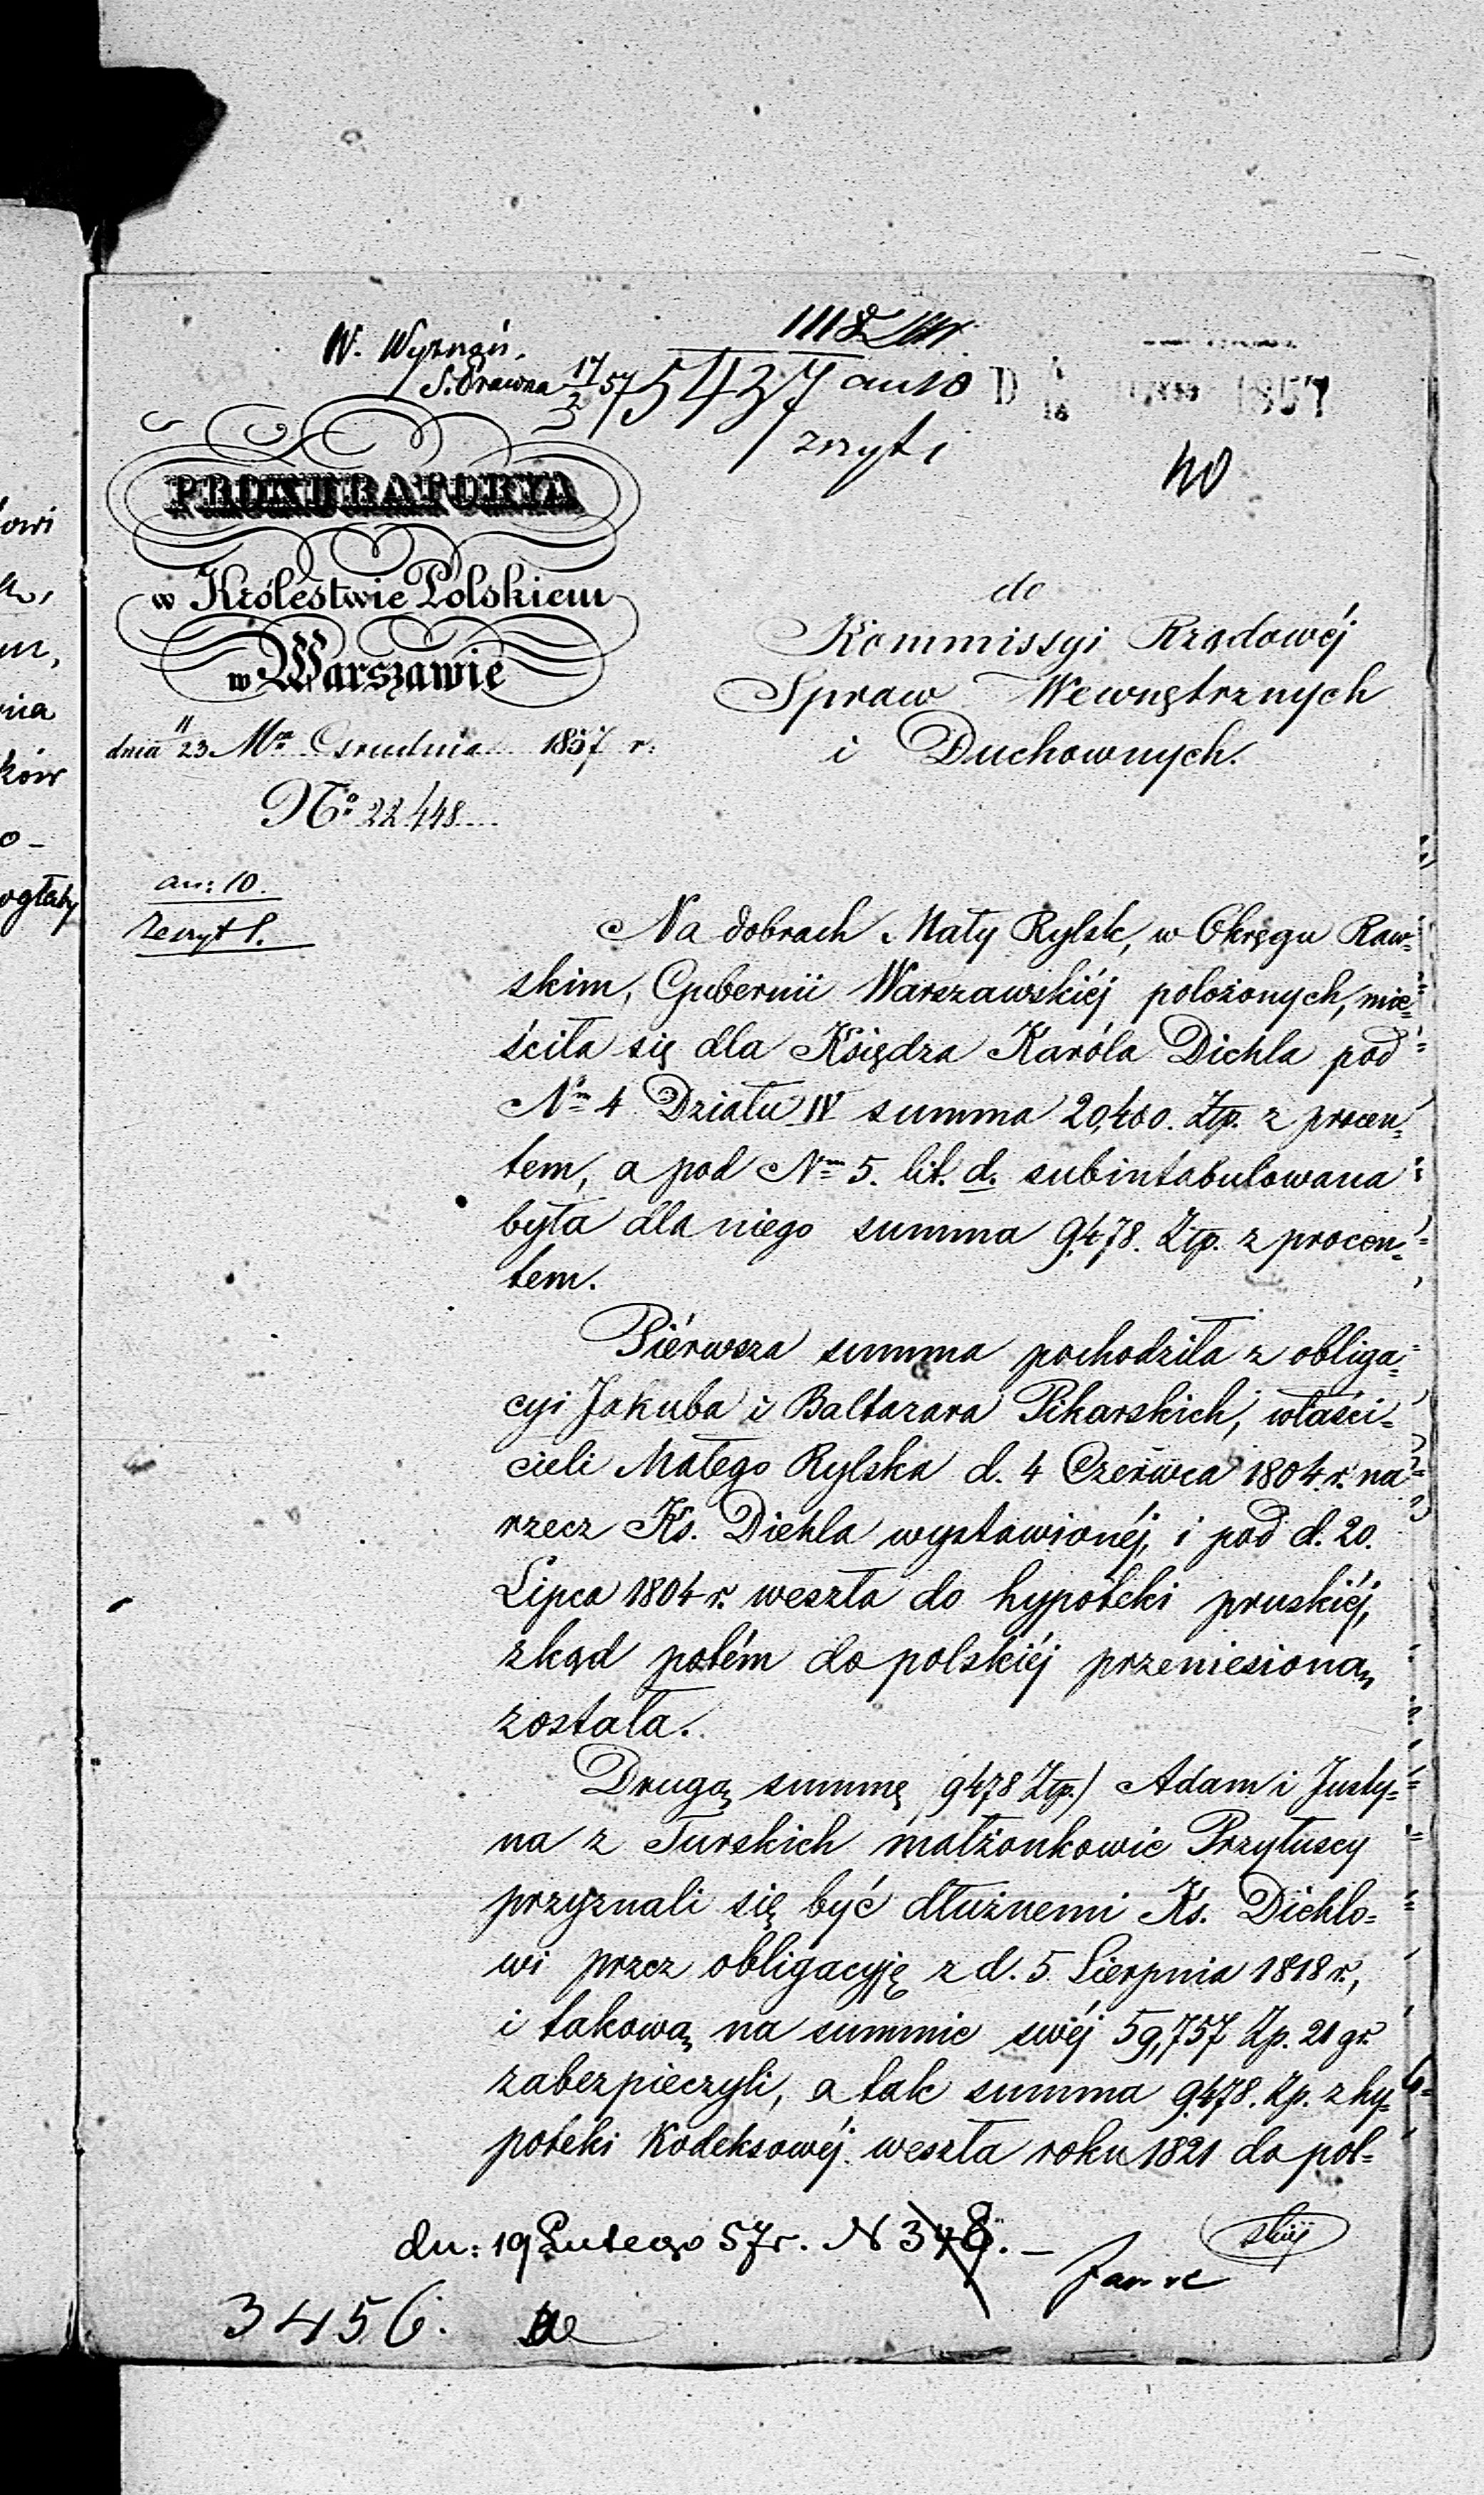 W. Wyznań.
S. Prawna 17/2 57
5437 an 10
zszyt 1
1857
40
PROKURATORYA
w Królestwie Polskiem
w Warszawie
dnia 11/23 Mca Grudnia 1857 r.
No 22448
an: 10.
Zeszyt 1.
do
Kommissyi Rządowéj
Spraw Wewnętrznych
i Duchownych.
Na dobrach Mały Rylsk, w Okręgu Raw-
skim, Gubernii Warszawskiéj położonych, mie-
ściła się dla Księdza Karóla Diehla pod
Nm 4 Działu IV summa 20,400. Złp. z procen-
tem, a pod Nm 5. lit. d. subintabulowana
była dla niego summa 9,478. Złp. z procen-
tem.
Piérwsza summa pochodziła z obliga-
cyi Jakuba i Baltazara Pikarskich, właści-
cieli Małego Rylska d. 4 Czerwca 1804 r. na
rzecz Ks. Diehla wystawionéj, i pod d. 20.
Lipca 1804 r. weszła do hypoteki pruskiéj,
zkąd potém do polskiéj przeniesioną
została.
Drugą summę 9478 Złp.) Adam i Justy-
na z Turskich małżonkowie Przyłuscy
przyznali się być dłużnemi Ks. Diehlo-
wi przez obligacyję z d. 5 Sierpnia 1818 r.,
i takową na summie swéj 59,757 Zp. 21 gr.
zabezpieczyli, a tak summa 9,478. Zp. z hy-
poteki Kodeksowéj weszła roku 1821 do pol-
skiéj
dn: 19 Lutego 57 r. N 348. –
3456.